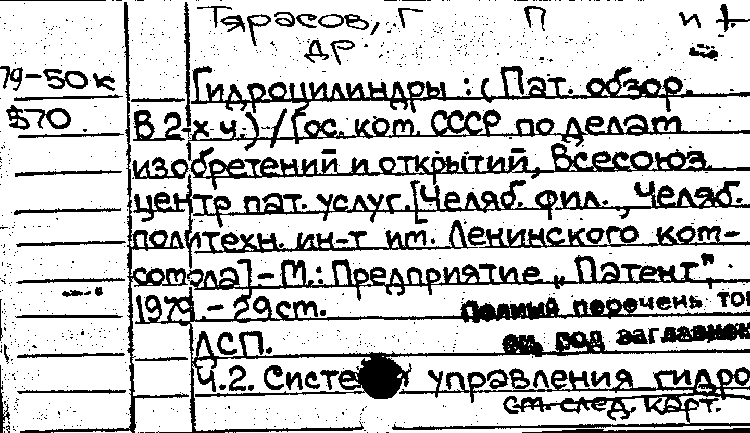 Тярасов, Г П и
др.
79-50к Гидроцилиндры : (Пат. обзор.
570 В 2-х ч.) / Гос. ком. СССР по делам
изобретений и открытий, Всесоюз.
центр пат. услуг. [Челяб. фил., Челяб.
политехн. ин-т им. Ленинского ком-
сомола] - М.: Предприятие „Патент",
1979. - 29 ст. Полный перечень
ДСП. см. под заглавием
Ч.2. Систе управления гидро
см. след. карт.